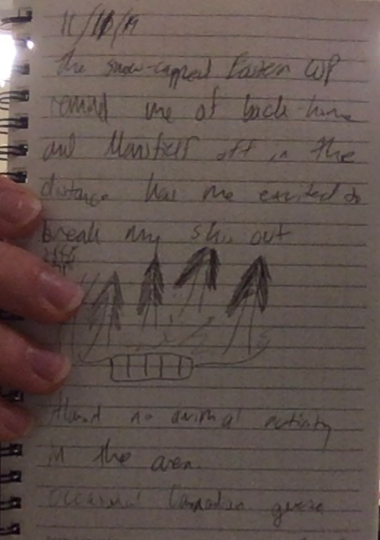 11/10/19
The snow-capped Eastern WP
remind me of back-home
and Mansfield off in the
distance has me excited to
break my ski out
Almost no animal activity
in the area.
occasional Canadian geese